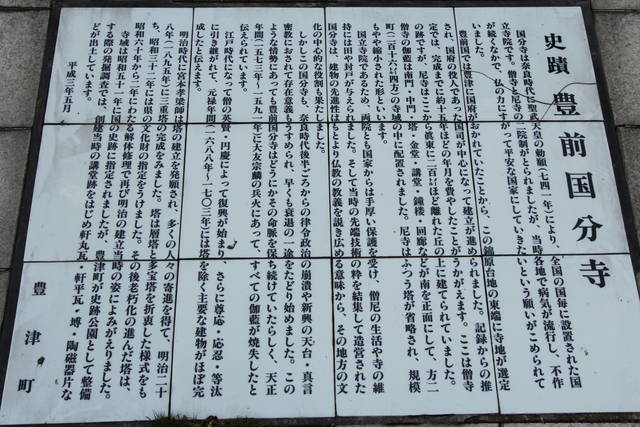 史蹟 豊前国分寺
国分寺は奈良時代に聖武天皇の勅願（七四一年）により、全国の国毎に設置された国
立寺院です。僧寺と尼寺の二院制がとられましたが、当時各地で病気が流行し、不作
が続くなかで、仏の力にすがって平安な国家にしていきたいという願いがこめられて
いました。
豊前国では豊津に国府がおかれていたことから、この錦原台地の東端に寺地が選定
され、国府の役人であった国司が中心になって建立が進められました。記録からの推
定では、完成までに約十五年ほどの年月を費やしたことがうかがえます。ここは僧寺
の跡ですが、尼寺はここから真東に二百㍍ほど離れた丘の上に建てられていました。
僧寺の伽藍は南門・中門・塔・金堂・講堂・鐘楼・回廊などが南を正面にして、方二
町（二百十六㍍四方）の寺域の中に配置されました。尼寺はふつう塔が省略され、規模
もやや縮小された形といいます。
国立寺院であるため、両院とも国家からは手厚い保護を受け、僧尼の生活や寺の維
持には田や封戸が与えられました。そして当時の先端技術の粋を結集して造営された
国分寺は、建物の先進性はもとより仏教の教義を説き広める意味から、その地方の文
化の中心的な役割も果たしました。
しかしこの国分寺も、奈良時代後半ごろからの律令政治の崩潰や新興の天台・真言
密教におされて存在意義もうすめられ、早くも衰退の一途をたどり始めました。この
ような情勢にあっても豊前国分寺はどうにかその命脈を保ち続けていたらしく、天正
年間（一五七三〜一五九一年）に大友宗麟の兵火にあって、すべての伽藍が焼失したと
伝えられています。
江戸時代になって僧の英賢・円慶によって復興が始まり、さらに尊応・応忍・等汰
に引き継がれて、元禄年間（一六八八〜一七〇三年）には塔を除く主要な建物がほぼ完
成したと伝えます。
明治時代に宮本孝梁師は塔の建立を発願され、多くの人々の寄進を得て、明治二十
八年（一八九五年）に三重塔の完成をみました。塔は層塔と多宝塔を折衷した様式をも
ち、昭和三十二年には県の文化財の指定をうけました。その後老朽化の進んだ塔は、
昭和六十年から二年にわたる解体修理で再び明治の建立当時の姿によみがえりました。
寺域は昭和五十一年に国の史跡に指定されましたが、豊津町が史跡公園として整備
する際の発掘調査では、創建当時の講堂跡をはじめ軒丸瓦・軒平瓦・塼・陶磁器片な
どが出土しています。
平成三年五月
豊津町